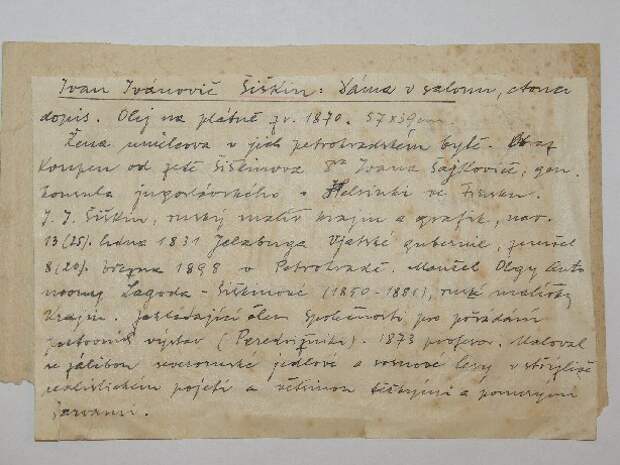 Ivan Ivánovič Šiškin: Dáma v salonu, čtoucí
dopis. Olej na plátně z r. 1870. 57x39cm.
Žena umělcova v jich petrohradském bytě. Obraz
koupen od zetě Šiškinova Ivana Šajkoviče, gen.
konsula jugoslávského v Helsinki ve Finsku.
I. I. Šiškin, ruský malíř krajin a grafik, nar.
13 (25). ledna 1831 Jelabuga Vjatské gubernie, zemřel
8 (20). března 1898 v Petrohradě. Manžel Olgy Anto
novny Lagoda - Šiškinové (1850 - 1881), ruské malířky
krajin. Zakládající člen společnosti pro pořádání
výstav (Peredvižniki). 1873 profesor. Maloval
se zálibou severoruské jedlové a sosnové lesy v střízlivě
realistickém pojetí a většinou těžkými a ponurými
barvami.